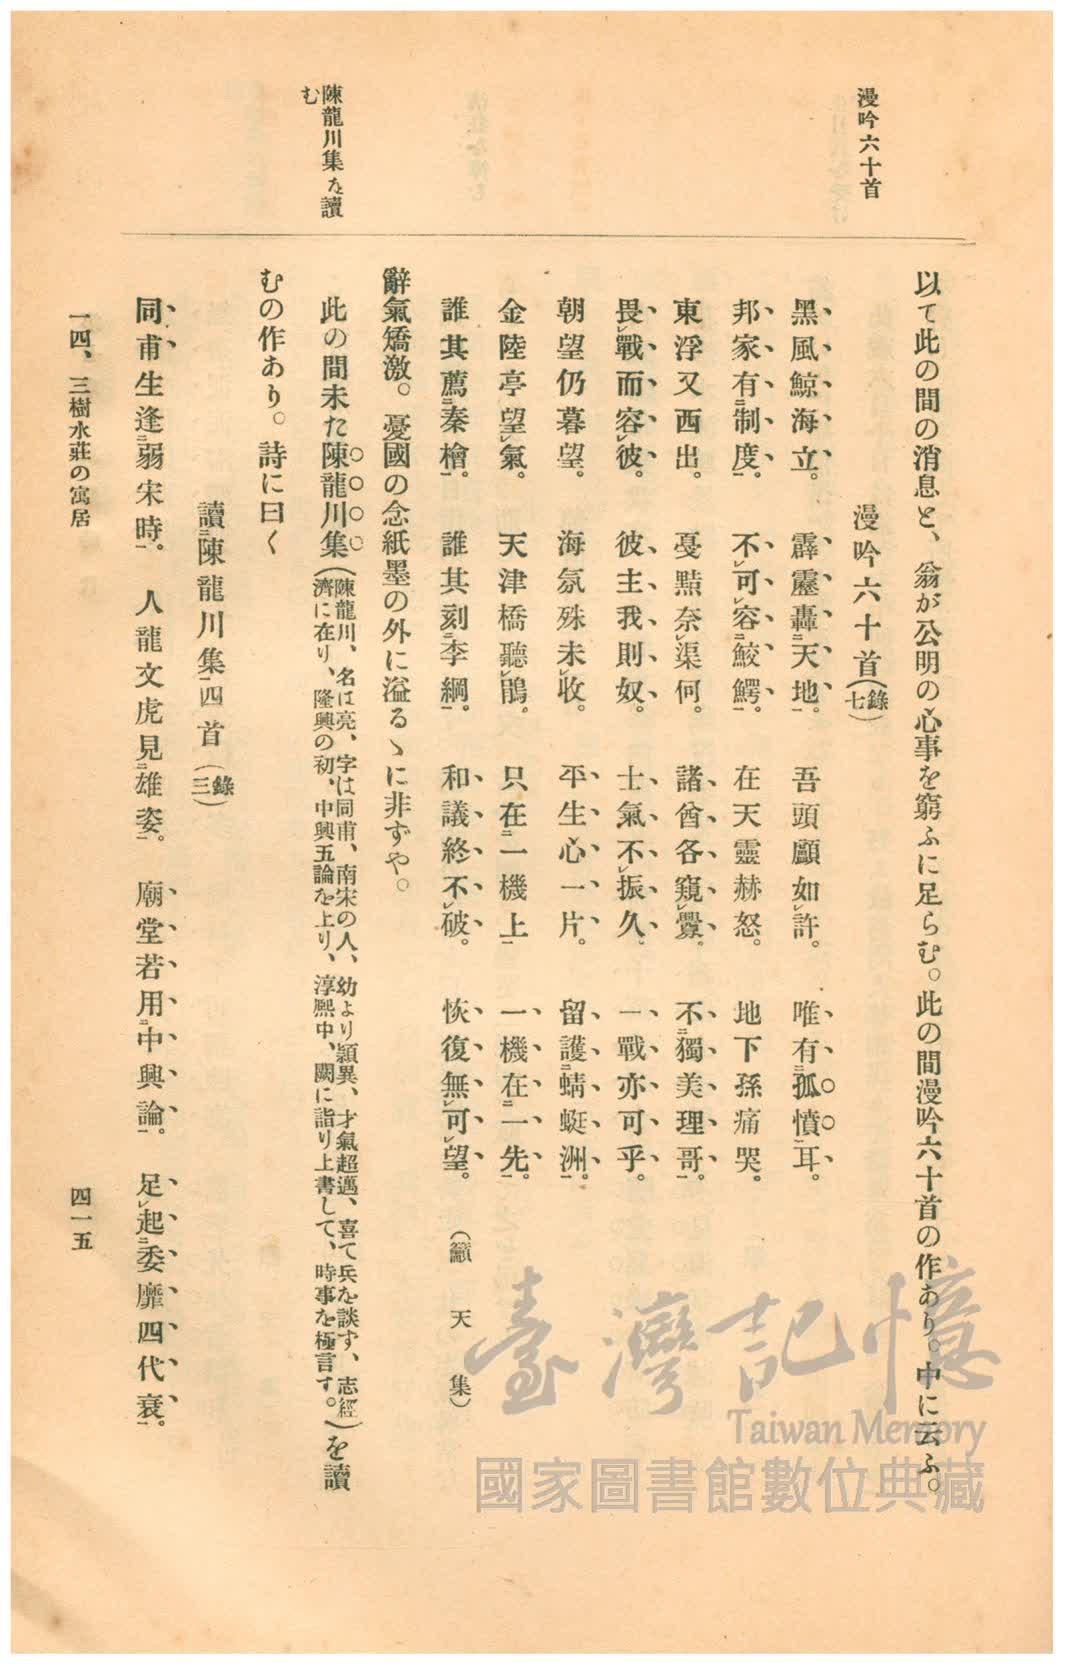 漫吟六十首
以て此の間の消息と、翁が公明の心事を窮ふに足らむ。此の間漫吟六十首の作あり。中に云ふ。
漫吟六十首(錄七)
黑風鯨海立。霹靂轟二天地一。吾頭顱如レ許。唯有二孤憤一耳。
邦家有二制度一。不レ可レ容二鮫鰐一。在天靈赫怒。地下孫痛哭。
東浮又西出。憂黠奈レ渠何。諸酋各窺レ釁。不二獨美理哥一。
畏レ戰而容レ彼。彼主我則奴。士氣不レ振久。一戰亦可乎。
朝望仍暮望。海氛殊未レ收。平生心一片。留護二蜻蜓洲一。
金陸亭望レ氣。天津橋聽レ鵑。只在二一機上一。一機在二一先一。
誰其薦二秦檜一。誰其刻二李綱一。和議終不レ破。恢復無レ可レ望。(籲天集)
辭氣矯激。憂國の念紙墨の外に溢るゝに非ずや。
陳龍川集を讀
む
此の間未た陳龍川集(陳龍川、名は亮、字は同甫、南宋の人、幼より穎異、才氣超邁、喜て兵を談す、志經
濟に在り、隆興の初、中興五論を上り、淳熙中、闕に詣り上書して、時事を極言す。)を讀
むの作あり。詩に曰く
讀二陳龍川集一四首(錄三)
同甫生逢二弱宋時一。人龍文虎見二雄姿一。廟堂若用二中興論一。足レ起二委靡四代衰一。
一四、三樹水莊の寓居
四一五
臺灣記憶
Taiwan Memory
國家圖書館數位典藏